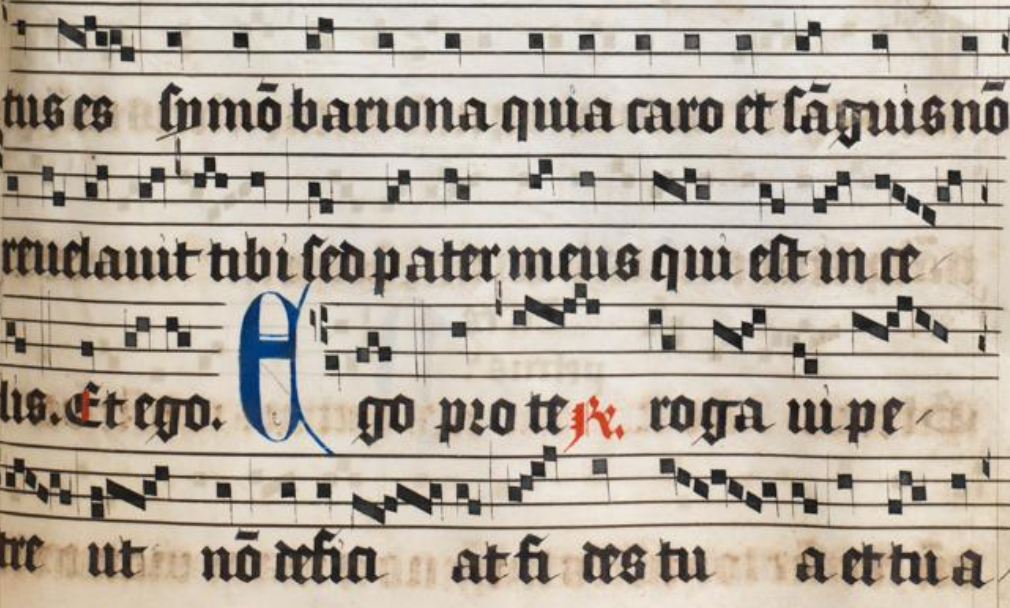 tus es symō bariona quia caro et sāguis nō
reuelauit tibi sed pater meus qui est in ce
lis. Et ego. Ego pro te R. rogaui pe
tre ut nō defici at fides tua et tu a